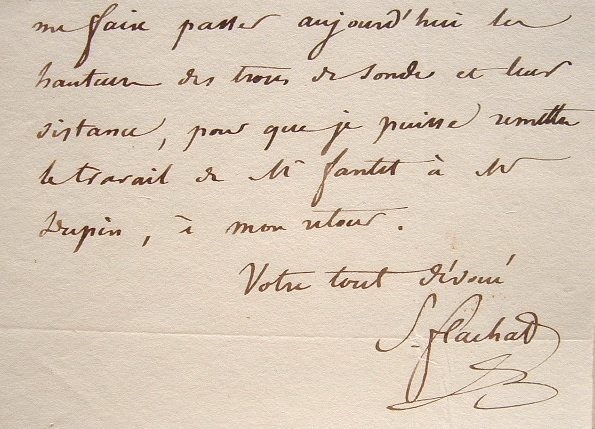 me faire passer aujourd'hui les
hauteurs des trous de sonde et leur
distance, pour que je puisse remettre
le travail de Mr fantet à Mr
Dupin, à mon retour.
Votre tout dévoué
S. flachat